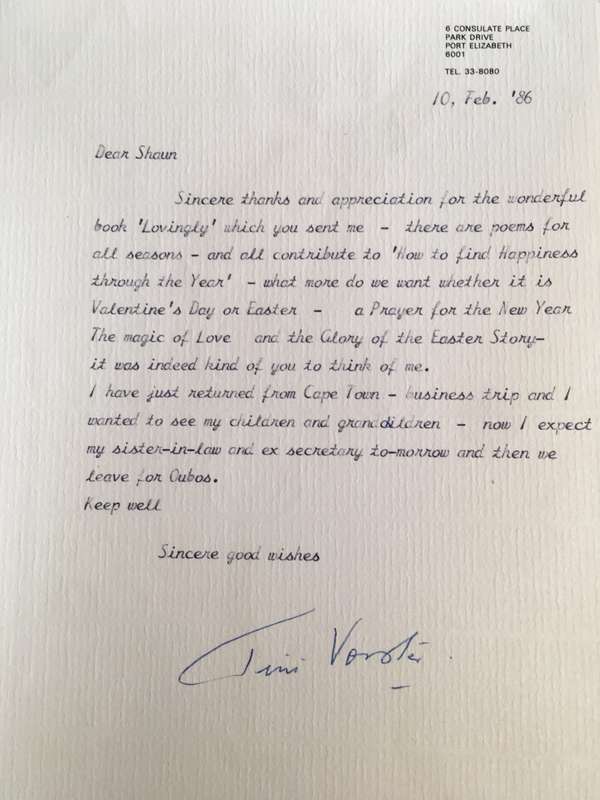 6 CONSULATE PLACE
PARK DRIVE
PORT ELIZABETH
6001
TEL. 33-8080
10, Feb. '86
Dear Shaun
Sincere thanks and appreciation for the wonderful
book 'Lovingly' which you sent me - there are poems for
all seasons - and all contribute to 'How to find Happiness
through the Year' - what more do we want whether it is
Valentine's Day or Easter - a Prayer for the New Year
The magic of Love and the Glory of the Easter Story-
it was indeed kind of you to think of me.
I have just returned from Cape Town - business trip and I
wanted to see my children and grandildren - now I expect
my sister-in-law and ex secretary to-morrow and then we
leave for Oubos.
Keep well
Sincere good wishes
Tini Vorster.